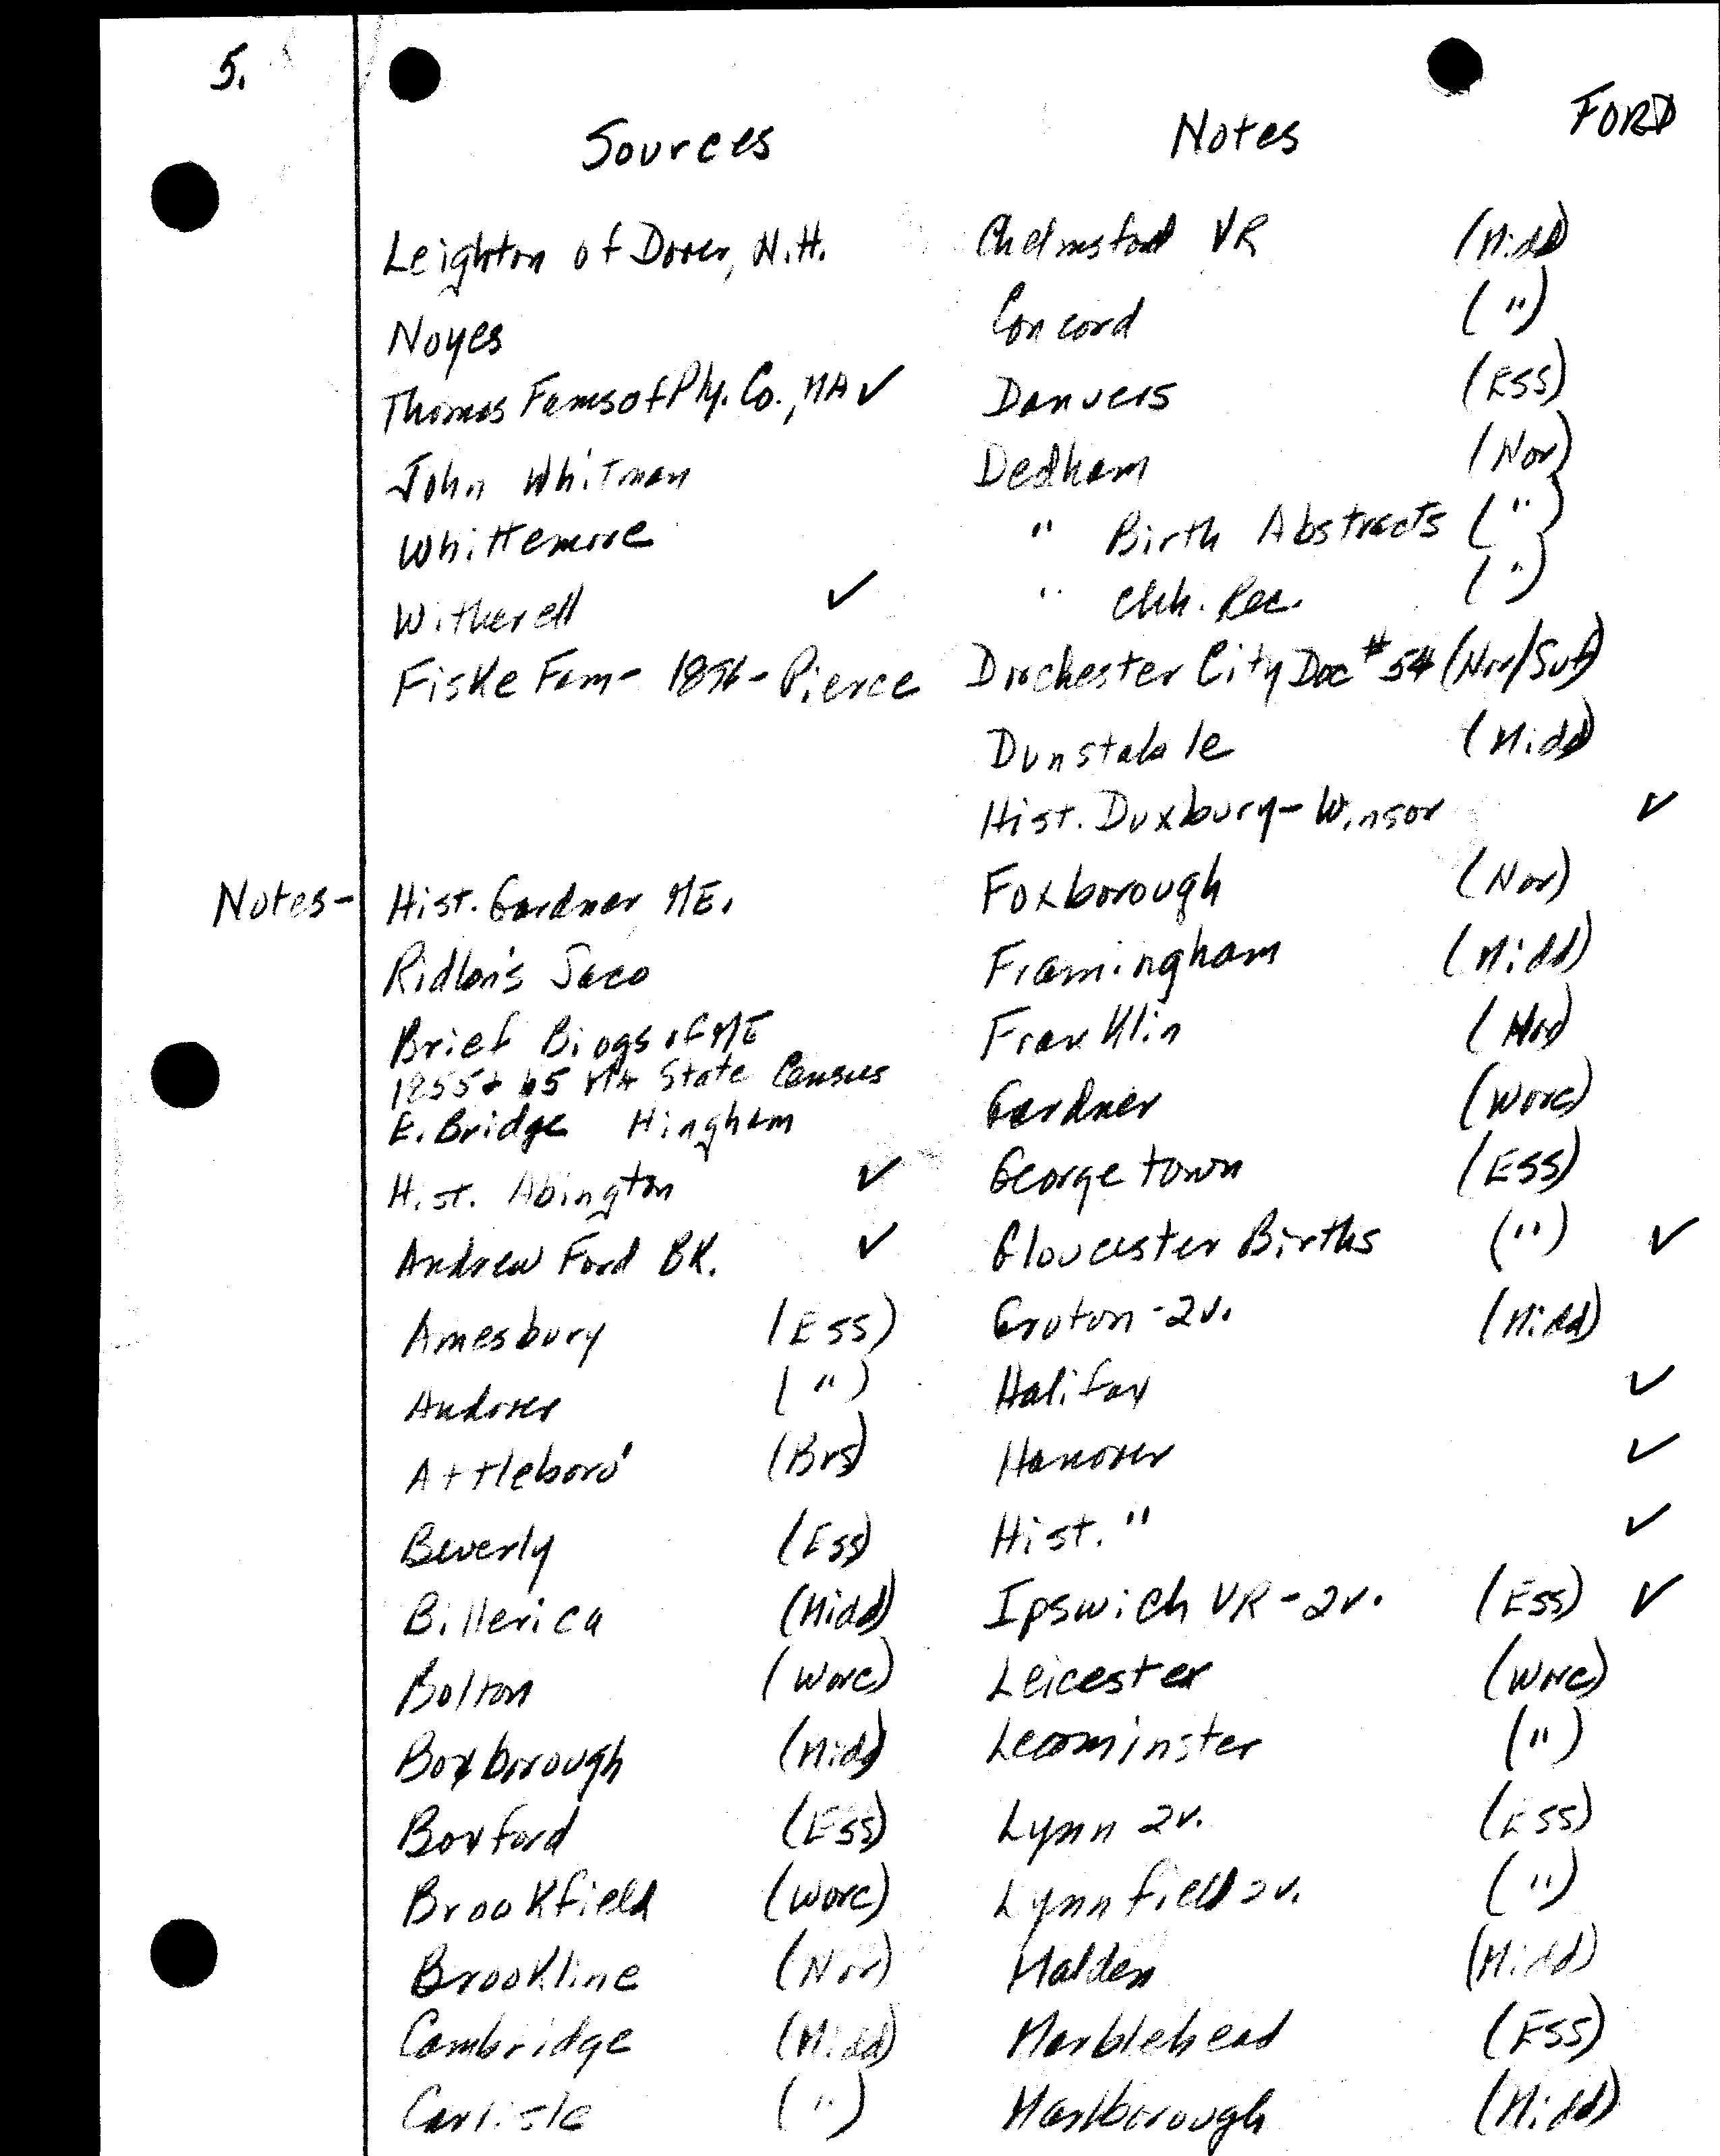 5.
FORD
Sources
Leighton of Dover, N.H.
Noyes
Thomas Fams of Ply. Co., MA ✓
John Whitman
Whittemore
Witherell ✓
Fiske Fam - 1896 - Pierce
Notes - Hist. Gardner, ME.
Ridlon's Saco
Brief Biogs of ME
1855 + 65 MA State Census
E. Bridge Hingham
Hist. Abington ✓
Andrew Ford BK. ✓
Amesbury (Ess)
Andover (")
Attleboro' (Brs)
Beverly (Ess)
Billerica (Midd)
Bolton (Worc)
Boxborough (Midd)
Boxford (Ess)
Brookfield (Worc)
Brookline (Nor)
Cambridge (Midd)
Carlisle (")
Notes
Chelmsford VR (Midd)
Concord (")
Danvers (Ess)
Dedham (Nor)
" Birth Abstracts (")
" Chh. Rec. (")
Dorchester City Doc #54 (Nor/Suf)
Dunstable (Midd)
Hist. Duxbury - Winsor ✓
Foxborough (Nor)
Framingham (Midd)
Franklin (Nor)
Gardner (Worc)
Georgetown (Ess)
Gloucester Births (") ✓
Groton - 2v. (Midd)
Halifax ✓
Hanover ✓
Hist. " ✓
Ipswich VR - 2v. (Ess) ✓
Leicester (Worc)
Leominster (")
Lynn 2v. (Ess)
Lynnfield 2v. (")
Malden (Midd)
Marblehead (Ess)
Marlborough (Midd)